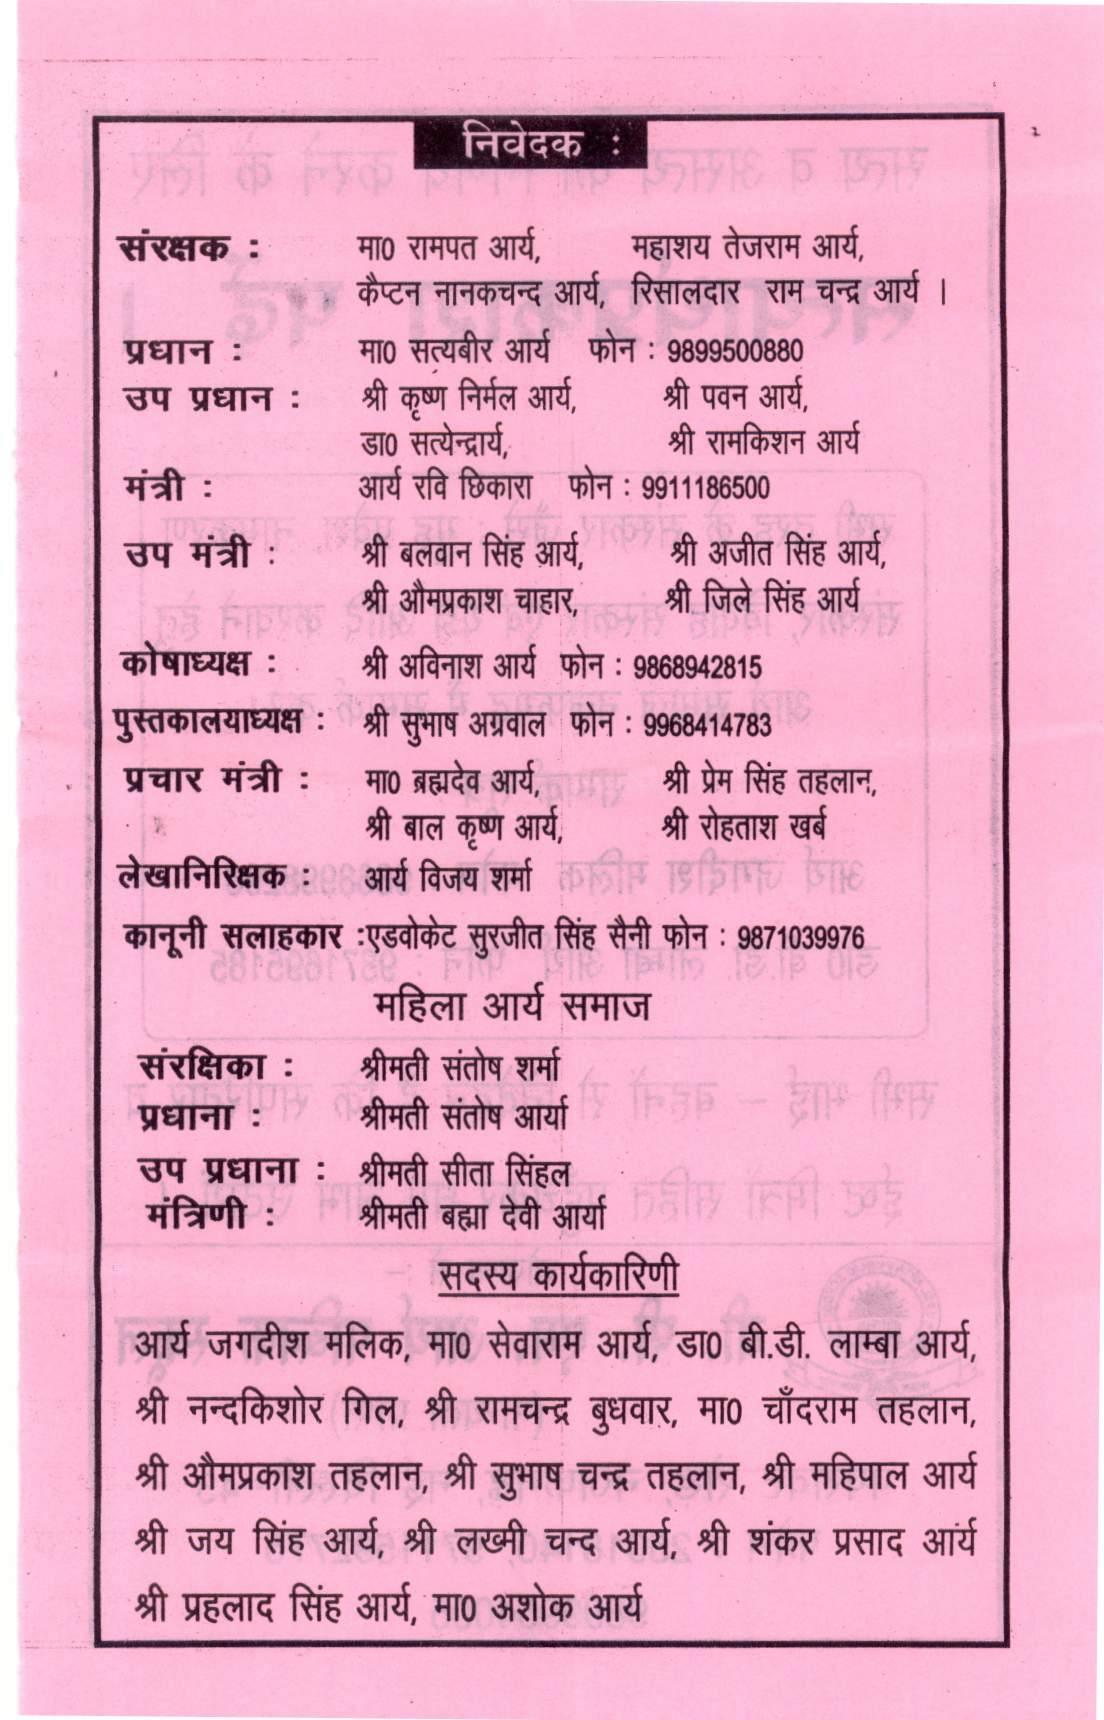 निवेदक :
संरक्षक : मा0 रामपत आर्य, महाशय तेजराम आर्य,
कैप्टन नानकचन्द आर्य, रिसालदार राम चन्द्र आर्य ।
प्रधान : मा0 सत्यबीर आर्य फोन : 9899500880
उप प्रधान : श्री कृष्ण निर्मल आर्य, श्री पवन आर्य,
डा0 सत्येन्द्रार्य, श्री रामकिशन आर्य
मंत्री : आर्य रवि छिकारा फोन : 9911186500
उप मंत्री : श्री बलवान सिंह आर्य, श्री अजीत सिंह आर्य,
श्री औमप्रकाश चाहार, श्री जिले सिंह आर्य
कोषाध्यक्ष : श्री अविनाश आर्य फोन : 9868942815
पुस्तकालयाध्यक्ष : श्री सुभाष अग्रवाल फोन : 9968414783
प्रचार मंत्री : मा0 ब्रह्मदेव आर्य, श्री प्रेम सिंह तहलान,
श्री बाल कृष्ण आर्य, श्री रोहताश खर्ब
लेखानिरिक्षक : आर्य विजय शर्मा
कानूनी सलाहकार :एडवोकेट सुरजीत सिंह सैनी फोन : 9871039976
महिला आर्य समाज
संरक्षिका : श्रीमती संतोष शर्मा
प्रधाना : श्रीमती संतोष आर्या
उप प्रधाना : श्रीमती सीता सिंहल
मंत्रिणी : श्रीमती बह्मा देवी आर्या
सदस्य कार्यकारिणी
आर्य जगदीश मलिक, मा0 सेवाराम आर्य, डा0 बी.डी. लाम्बा आर्य,
श्री नन्दकिशोर गिल, श्री रामचन्द्र बुधवार, मा0 चाँदराम तहलान,
श्री औमप्रकाश तहलान, श्री सुभाष चन्द्र तहलान, श्री महिपाल आर्य
श्री जय सिंह आर्य, श्री लख्मी चन्द आर्य, श्री शंकर प्रसाद आर्य
श्री प्रहलाद सिंह आर्य, मा0 अशोक आर्य